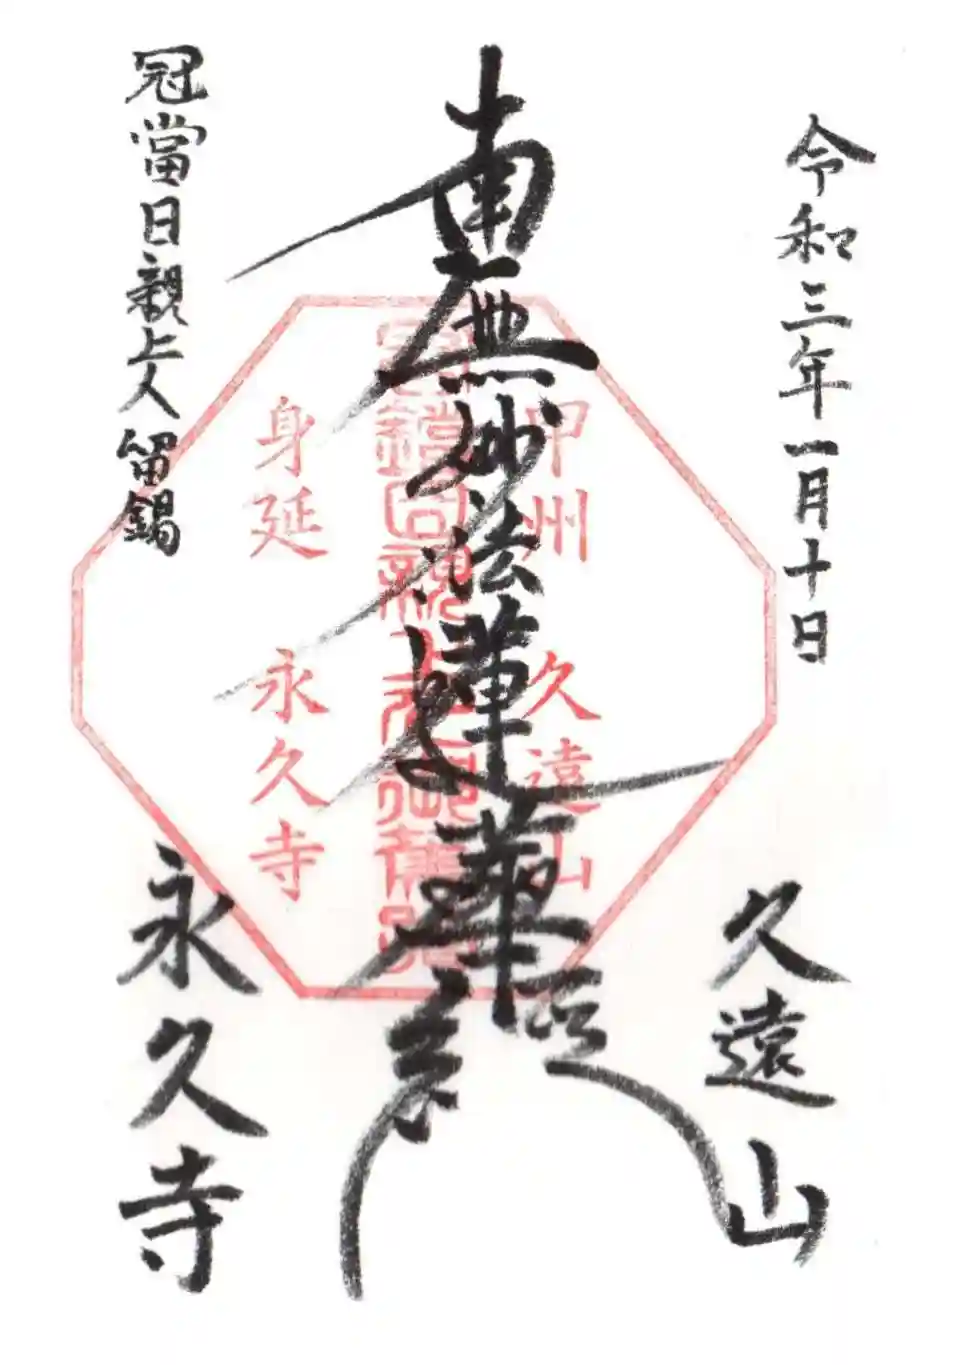 令和三年一月十日
久遠山
南無妙法蓮華経
冠當日親上人留錫
永久寺
甲州
久遠山
身延
永久寺